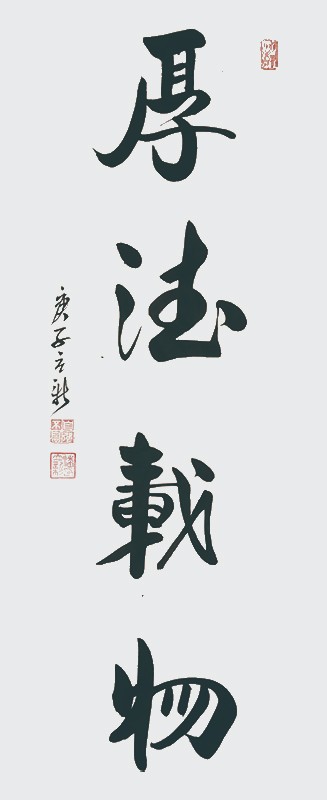 厚德載物
庚子立新